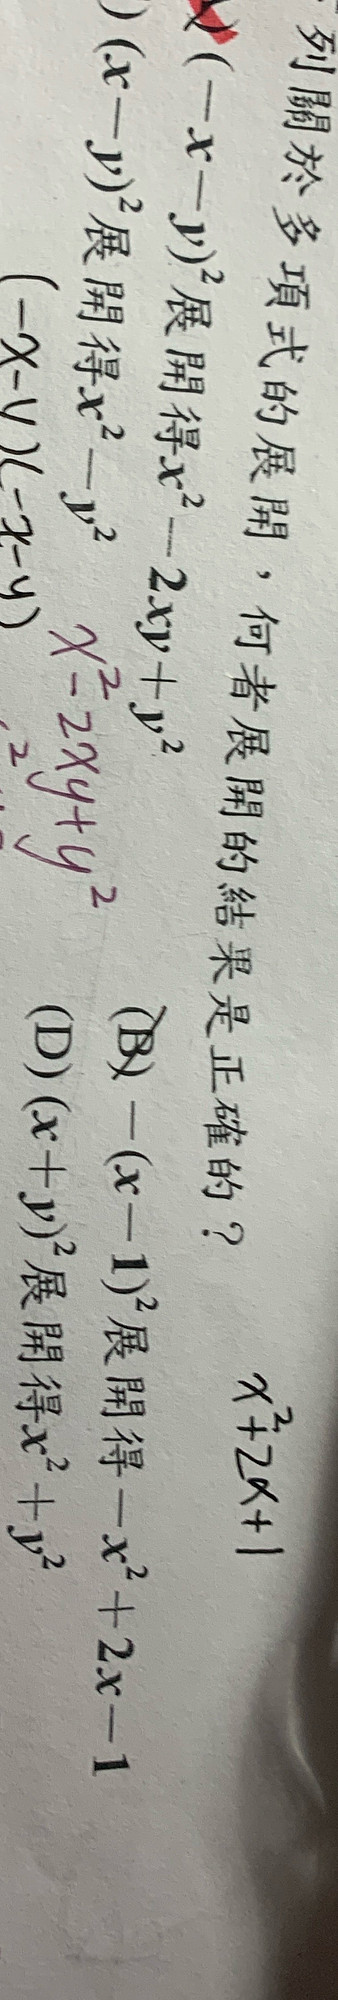 列關於多項式的展開，何者展開的結果是正確的？
x²+2x+1
(−x−y)²展開得x²−2xy+y²
(B) −(x−1)²展開得−x²+2x−1
) (x−y)²展開得x²−y²
(D) (x+y)²展開得x²+y²
x²-2xy+y²
(-x-y)(-x-y)